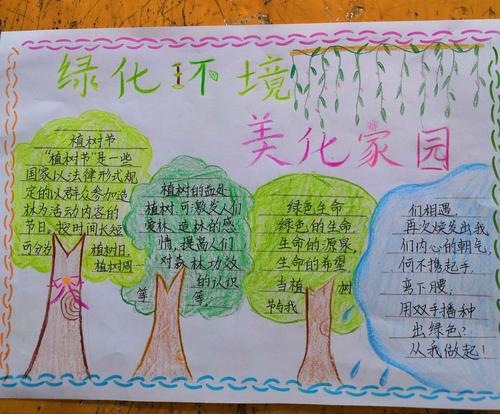 绿化环境
美化家园
植树节
"植树节"是一些
国家以法律形式规
定的以群众参加造
林为活动内容的
节日。按时间长短
可分为 植树日、
植树周…
植树的益处
植树，可激发人们
爱林、造林的感
情，提高人们
对森林功效
的认识
等 等。
绿色生命
绿色的生命，
生命的源泉，
生命的希望
当植 树
节与我
们相遇，
再次焕发出我
们内心的朝气，
何不携起手，
弯下腰，
用双手播种
出绿色？
从我做起！